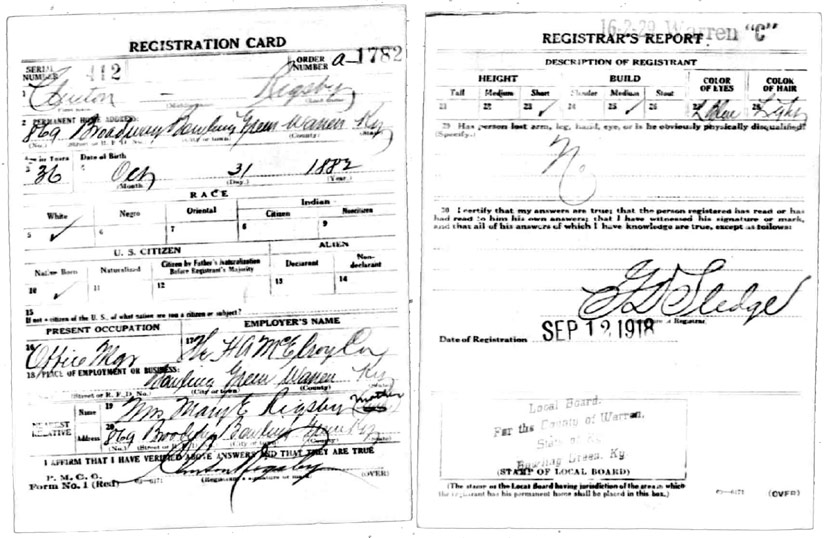 REGISTRATION CARD
SERIAL NUMBER 412 ORDER NUMBER a-1782
1 Clinton - Rigsby
(Middle name)
2 PERMANENT HOME ADDRESS:
869 Broadway Bowling Green Warren Ky
(No.) (Street or R. F. D. No.) (City or town) (County) (State)
Age in Years Date of Birth
3 36 4 Oct 31 1882
(Month) (Day) (Year)
RACE
White Negro Oriental Indian
Citizen Noncitizen
5 ✓ 6 7 8 9
U. S. CITIZEN ALIEN
Native Born Naturalized Citizen by Father's Naturalization Before Registrant's Majority Declarant Non-declarant
10 ✓ 11 12 13 14
15
If not a citizen of the U. S., of what nation are you a citizen or subject?
PRESENT OCCUPATION EMPLOYER'S NAME
16 Office Mgr 17 The HA McElroy Co
18 PLACE OF EMPLOYMENT OR BUSINESS:
Bowling Green Warren Ky
(Street or R. F. D. No.) (City or town) (County) (State)
NEAREST RELATIVE
Name 19 Mrs Mary E Rigsby mother
Address 20 869 Broadway Bowling Green Ky
(No.) (Street or R. F. D. No.) (City or town) (State)
I AFFIRM THAT I HAVE VERIFIED ABOVE ANSWERS AND THAT THEY ARE TRUE
P. M. G. O.
Form No. 1 (Red) Clinton Rigsby (OVER)
(Registrant's signature or mark)
16-2-29 Warren "C"
REGISTRAR'S REPORT
DESCRIPTION OF REGISTRANT
HEIGHT BUILD COLOR OF EYES COLOR OF HAIR
Tall Medium Short Slender Medium Stout
21 22 23 ✓ 24 25 ✓ 26 27 Blue 28 Light
29 Has person lost arm, leg, hand, eye, or is he obviously physically disqualified?
(Specify.)
30 I certify that my answers are true; that the person registered has read or has had read to him his own answers; that I have witnessed his signature or mark, and that all of his answers of which I have knowledge are true, except as follows:
Sledge
Date of Registration SEP 12 1918
Local Board
For the County of Warren,
State of Ky.
Bowling Green, Ky.
(STAMP OF LOCAL BOARD)
(The stamp of the Local Board having jurisdiction of the area in which the registrant has his permanent home shall be placed in this box.)
(OVER)